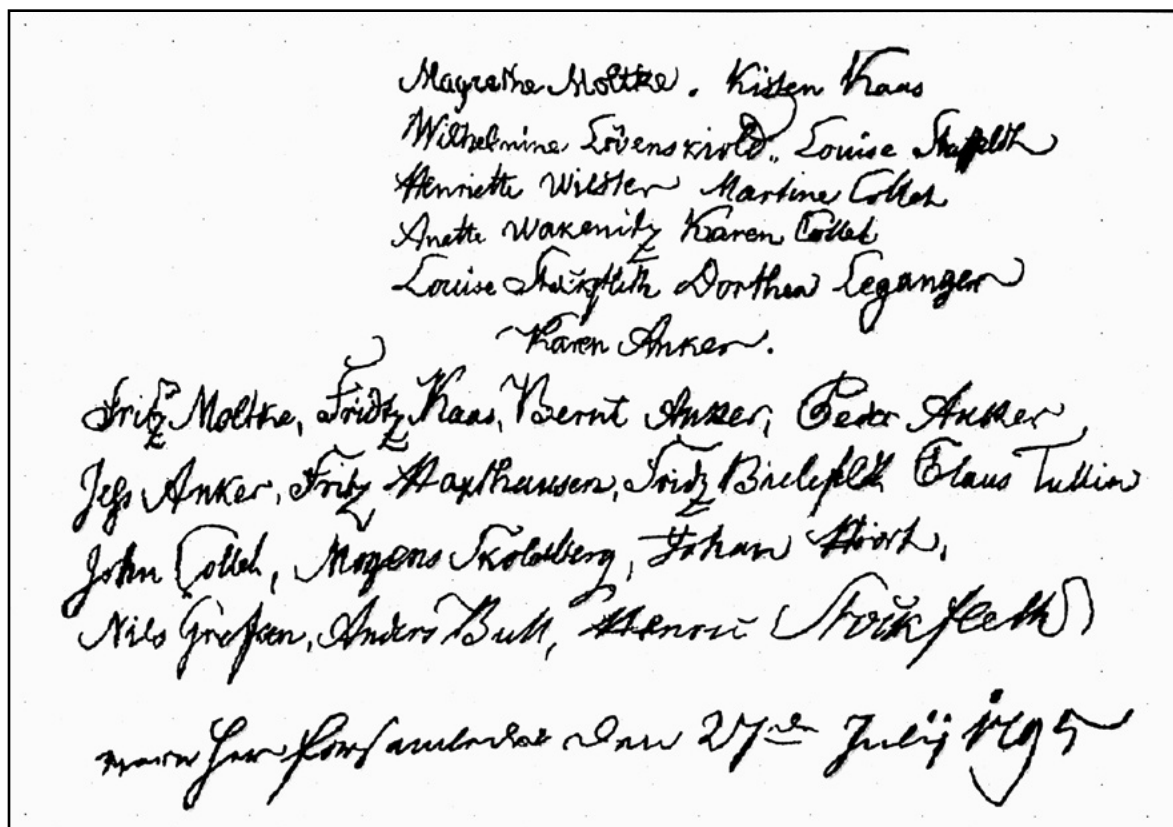 Magrethe Moltke. Kisten Kaas
Wilhelmine Lövenskiold,, Louise Staffeldth
Henriette Wilster Martine Collet
Anette Wakenitz Karen Collet
Louise Stockfleth Dorthea Leganger
Karen Anker.
Fritz Moltke, Fridtz Kaas, Bernt Anker, Peder Anker,
Jess Anker, Fritz Haxthausen, Fridz Bielefeldt Claus Tullin
John Collet, Mogens Skoldberg, Johan Hiort,
Nils Anders Bull, Henric Stockfleth
her forsamlede den 27de Julij 1795